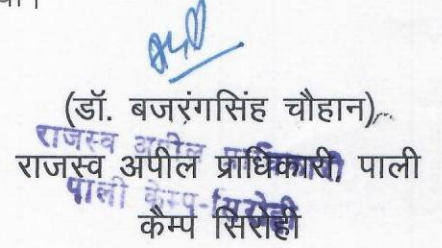 (डॉ. बजरंगसिंह चौहान)
राजस्व अपील प्राधिकारी, पाली
कैम्प सिरोही
राजस्व अपील प्राधिकारी
पाली कैम्प-सिरोही